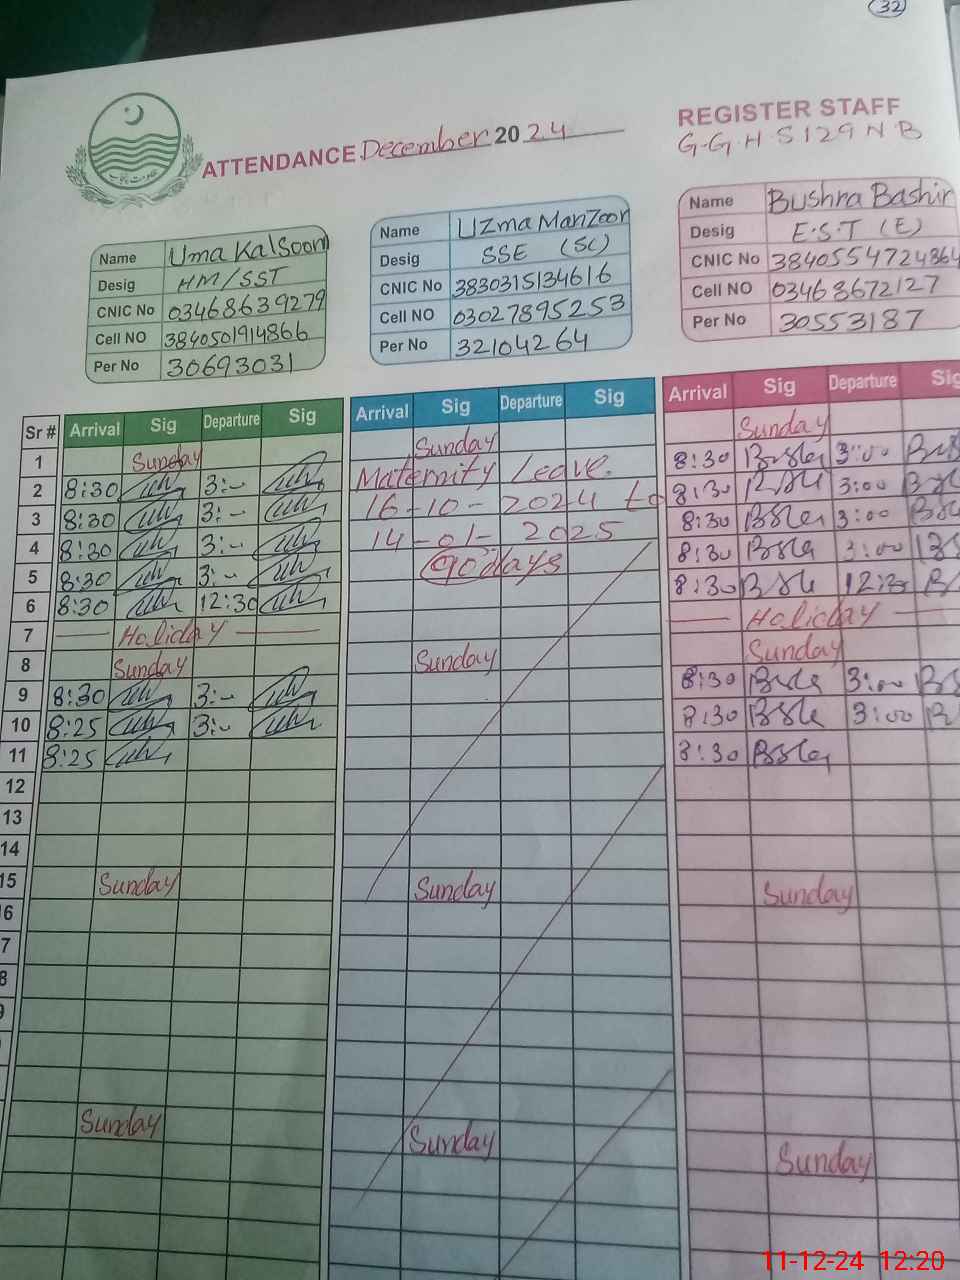 32
ATTENDANCE December 2024
REGISTER STAFF
G-G-H S129NB
Name Uma Kalsoom
Desig HM/SST
CNIC No 03468639279
Cell NO 3840501914866
Per No 30693031
Name Uzma Manzoor
Desig SSE (SC)
CNIC No 3830315134616
Cell NO 03027895253
Per No 32104264
Name Bushra Bashir
Desig E.S.T (E)
CNIC No 3840554724864
Cell NO 03468672127
Per No 30553187
Sr # Arrival Sig Departure Sig Arrival Sig Departure Sig Arrival Sig Departure Sig
1 Sunday Sunday Sunday
2 8:30 3:-- Maternity Leave. 8:30 3:00
3 8:30 3:-- 16-10-2024 to 8:30 3:00
4 8:30 3:-- 14-01-2025 8:30 3:00
5 8:30 3:-- 90 days 8:30 3:00
6 8:30 12:30 8:30 12:30
7 Holiday Holiday
8 Sunday Sunday Sunday
9 8:30 3:-- 8:30 3:00
10 8:25 3:-- 8:30 3:00
11 8:25 8:30
12
13
14
15 Sunday Sunday Sunday
6
7
8
9
Sunday Sunday Sunday
11-12-24 12:20